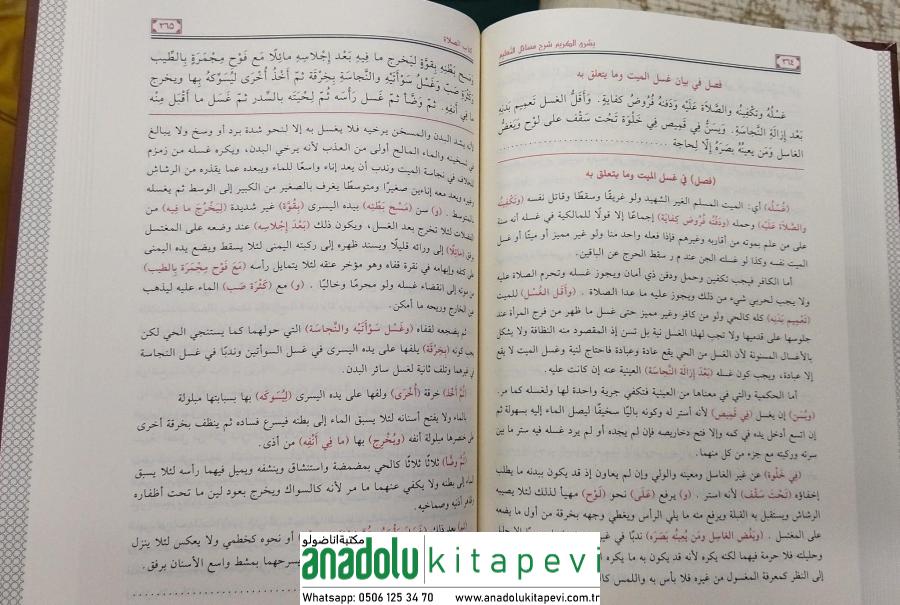 ٣٦٤
بشرى الكريم شرح مسائل التعليم
فصل في بيان غسل الميت وما يتعلق به
غَسْلُهُ وَتَكْفِينُهُ وَالصَّلَاةُ عَلَيْهِ وَدَفْنُهُ فُرُوضُ كِفَايَةٍ . وَأَقَلُّ الغسل تَعْمِيمُ بَدَنِهِ
بَعْدَ إِزَالَةِ النَّجَاسَةِ. وَيُسَنُّ فِي قَمِيصٍ فِي خَلْوَةٍ تَحْتَ سَقْفٍ عَلى لَوْحٍ وَيَغُضُّ
الغاسل وَمَن يعينُهُ بَصَرَهُ إِلَّا لِحاجة
(فصل) في غسل الميت وما يتعلق به
(غَسْلُهُ) أي: الميت المسلم الغير الشهيد ولو غريقًا وسقطًا وقاتل نفسه (وَتَكْفِينُهُ
وَالصَّلَاةُ عَلَيْهِ) وحمله (وَدَفْنُهُ فُرُوضُ كِفَايَةٍ) إجماعًا إلا قولًا للمالكية في غسله أنه سنة
على من علم بموته من أقاربه وغيرهم فإذا فعله واحد منا ولو غير مميز أو ميتًا أو غسل
الميت نفسه وكذا لو غسله الجن عند م ر سقط الحرج عن الباقين.
أما الكافر فيجب تكفين وحمل ودفن ذي أمان ويجوز غسله وتحرم الصلاة عليه
ولا يجب لحربي شيء من ذلك ويجوز عليه ما عدا الصلاة . (وأَقَل الغُسْلِ) للميت
(تَعْمِيم بَدَنِهِ) كله كالحي ولو من كافر وغير مميز حتى غسل ما ظهر من فرج المرأة عند
جلوسها على قدميها ولا تجب لهذا الغسل نية بل تسن إذ المقصود منه النظافة ولا يشكل
بالأغسال المسنونة لأن الغسل من الحي يقع عادة وعبادة فاحتاج لنية وغسل الميت لا يقع
إلا عبادة، ويجب كون غسله (بَعْدَ إِزَالَة النَّجَاسَة) العينية عنه إن كانت عليه.
أما الحكمية والتي في معناها من العينية فتكفي جرية واحدة لها ولغسله كما مر.
(وَيُسَن) إن يغسل (فِي قَمِيصٍ) لأنه أستر له وكونه باليًا سخيفًا ليصل الماء إليه بسهولة ثم
إن اتسع أدخل يده في كمه وإلا فتح دخاريصه فإن لم يجده أو لم يرد غسله فيه ستر ما بين
سرته وركبته مع جزء من كل منهما.
(فِي خَلْوَة) عن غير الغاسل ومعينه والولي وإن لم يعاون إذ قد يكون ببدنه ما يطلب
إخفاؤه (تَحْتَ سَقْف) لأنه أستر . (و) يرفع (عَلَى) نحو (لَوْح) مهيأ لذلك لئلا يصيبه
الرشاش ويستقبل به القبلة ويرفع منه ما يلي الرأس ويغطي وجهه بخرقة من أول ما يضعه
على المغتسل . (وَيَغُضّ الغاسل وَمَن يُعِينُهُ بَصَرَهُ) ندبًا في غير
وحليلته فلا حرمة فيهما لكنه يكره لأنه قد يكون به ما يكره
إلى النظر كمعرفة المغسول من غيره فلا بأس به واللمس
كتاب الصلاة
٣٦٥
بَطْنِهِ بِقُوَّةٍ لِيَخْرج مَا فِيهِ بَعْد إِجْلَاسِهِ مَائِلًا مَع فَوْحِ مِجْمَرَةٍ بِالطِّيبِ
صَبّ وَغَسْل سَوْأَتَيْهِ وَالنَّجَاسَةِ بِخِرْقَة ثُمَّ أَخْذ أُخْرَى لِيُسَوِّكَهُ بِهَا ويخرج
مَا فِي أَنفِهِ. ثمّ وَضَّأَ ثمَّ غسل رَأسَه ثُمَّ لِحْيَته بِالسِّدْر ثمَّ غسَل مَا أَقْبَل مِنْه
لأنه يشد البدن والمسخن يرخيه فلا يغسل به إلا لنحو شدة برد أو وسخ ولا يبالغ
في تسخينه والماء المالح أولى من العذب لأنه يرخي البدن، ويكره غسله من زمزم
للخلاف في نجاسة الميت وندب أن يعد إناء واسعًا للماء ويبعده عما يقذره من الرشاش
وغيره ويعد معه إناءين صغيرًا ومتوسطًا يغرف بالصغير من الكبير إلى الوسط ثم يغسله
بالمتوسط . (و) سن (مَسْح بَطْنِهِ) بيده اليسرى (بِقُوَّة) غير شديدة (لِيَخْرُجَ مَا فِيه) من
الفضلات لئلا تخرج بعد الغسل، ويكون ذلك (بَعْدَ إِجْلَاسِهِ) عند وضعه على المغتسل
(مَائِلًا) إلى ورائه قليلًا ويسند ظهره إلى ركبته اليمنى لئلا يسقط ويضع يده اليمنى
على كتفه وإبهامه في نقرة قفاه وهو مؤخر عنقه لئلا يتمايل رأسه (مَعَ فَوْح مِجْمَرَة بِالطيب)
إلى انقضاء غسله ولو محرمًا وخاليًا . (و) مع (كَثْرَة صَب) الماء عليه ليذهب
عن الخارج وريحه ما أمكن.
ثم يضجعه لقفاه (وغَسْل سَوْأَتَيْهِ والنَّجَاسَة) التي حولهما كما يستنجي الحي لكن
يجب كونه (بِخِرْقَة) يلفها على يده اليسرى في غسل السوأتين وندبًا في غسل النجاسة
في غيرهما وتلف ثانية لغسل سائر البدن.
(ثُمَّ أَخْذ) خرقة (أُخْرَى) ولفها على يده اليسرى (لِيُسَوِكَه) بها بسبابتها مبلولة
بالماء ولا يفتح أسنانه لئلا يسبق الماء إلى بطنه فيسرع فساده ثم ينظف بخرقة أخرى
على خنصرها مبلولة أنفه (ويُخْرِج) بها (ما فِي أَنْفِه) من أذى.
(ثُمَّ وضَّأ) ثلاثًا ثلاثًا كالحي بمضمضة واستنشاق وينشفه ويميل فيهما رأسه لئلا يسبق
الماء إلى بطنه ولا يكفي عنهما ما مر لأنه كالسواك ويخرج بعود لين ما تحت أظفاره
وظاهر أذنيه وصماخيه.
(ثُمَّ) بعد ذلك
أو نحوه كخطمي ولا يعكس لئلا ينزل
يسرحهما بمشط واسع الأسنان برفق.
مكتبة اناضولو
anadolu kitapevi
Whatsapp: 0506 125 34 70 www.anadolukitapevi.com.tr